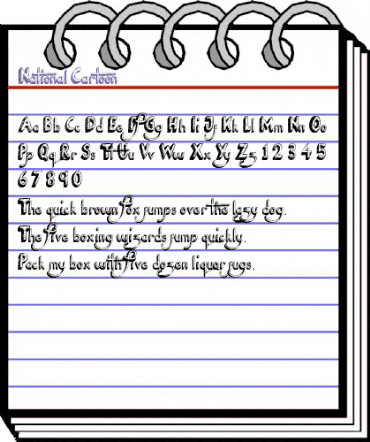 National Cartoon
Aa Bb Cc Dd Ee Ff Gg Hh Ii Jj Kk Ll Mm Nn Oo
Pp Qq Rr Ss Tt Uu Vv Ww Xx Yy Zz 1 2 3 4 5
6 7 8 9 0
The quick brown fox jumps over the lazy dog.
The five boxing wizards jump quickly.
Pack my box with five dozen liquer jugs.